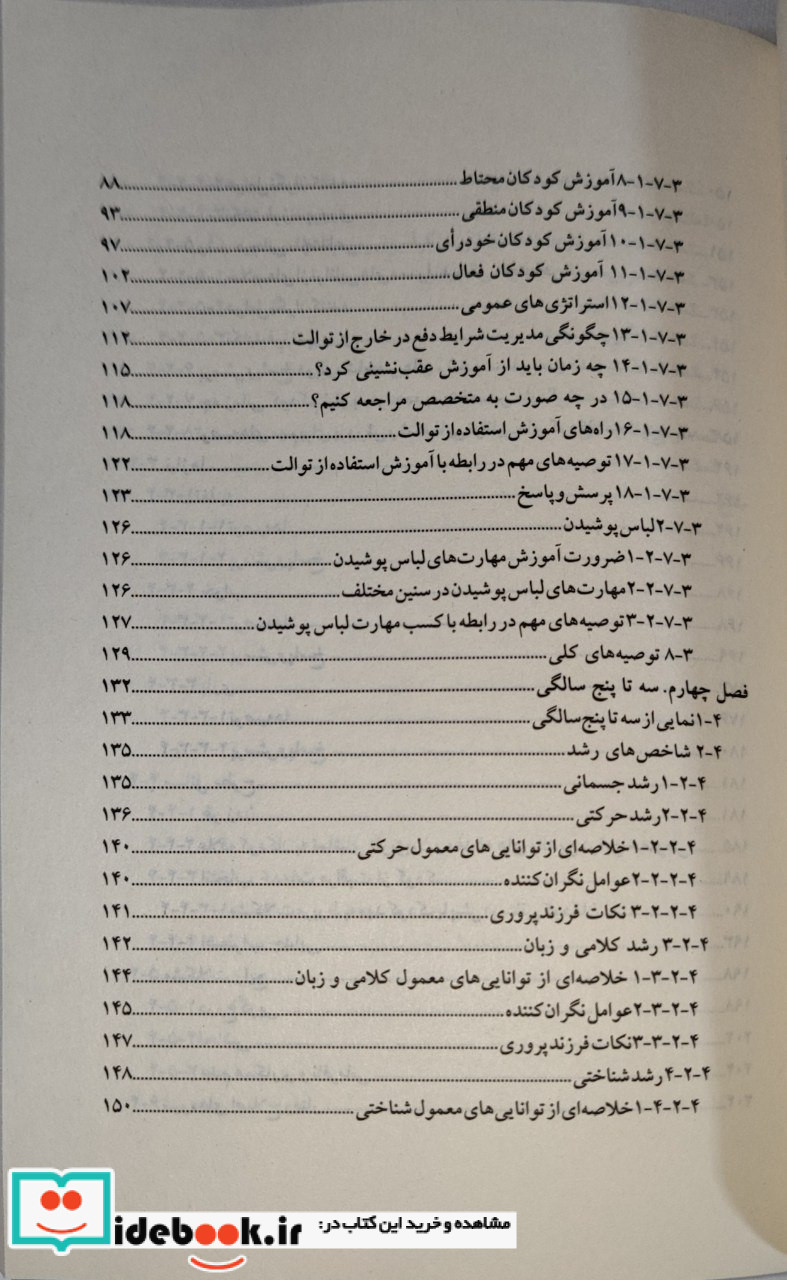 ۳-۷-۱-۸آموزش کودکان محتاط........۸۸
۳-۷-۱-۹آموزش کودکان منطقی........۹۳
۳-۷-۱-۱۰آموزش کودکان خودرأی........۹۷
۳-۷-۱-۱۱ آموزش کودکان فعال........۱۰۲
۳-۷-۱-۱۲استراتژی‌های عمومی........۱۰۷
۳-۷-۱-۱۳چگونگی مدیریت شرایط دفع در خارج از توالت........۱۱۲
۳-۷-۱-۱۴ چه زمان باید از آموزش عقب‌نشینی کرد؟........۱۱۵
۳-۷-۱-۱۵ در چه صورت به متخصص مراجعه کنیم؟........۱۱۸
۳-۷-۱-۱۶راه‌های آموزش استفاده از توالت........۱۱۸
۳-۷-۱-۱۷ توصیه‌های مهم در رابطه با آموزش استفاده از توالت........۱۲۲
۳-۷-۱-۱۸ پرسش و پاسخ........۱۲۳
۳-۷-۲لباس پوشیدن........۱۲۶
۳-۷-۲-۱ضرورت آموزش مهارت‌های لباس پوشیدن........۱۲۶
۳-۷-۲-۲مهارت‌های لباس پوشیدن در سنین مختلف........۱۲۶
۳-۷-۲-۳توصیه‌های مهم در رابطه با کسب مهارت لباس پوشیدن........۱۲۷
۳-۸ توصیه‌های کلی........۱۲۹
فصل چهارم. سه تا پنج سالگی........۱۳۲
۴-۱نمایی از سه تا پنج سالگی........۱۳۳
۴-۲ شاخص‌های رشد........۱۳۵
۴-۲-۱رشد جسمانی........۱۳۵
۴-۲-۲رشد حرکتی........۱۳۶
۴-۲-۲-۱خلاصه‌ای از توانایی‌های معمول حرکتی........۱۴۰
۴-۲-۲-۲عوامل نگران‌کننده........۱۴۰
۴-۲-۲-۳ نکات فرزندپروری........۱۴۱
۴-۲-۳ رشد کلامی و زبان........۱۴۲
۴-۲-۳-۱ خلاصه‌ای از توانایی‌های معمول کلامی و زبان........۱۴۴
۴-۲-۳-۲عوامل نگران‌کننده........۱۴۵
۴-۲-۳-۳نکات فرزندپروری........۱۴۷
۴-۲-۴ رشد شناختی........۱۴۸
۴-۲-۴-۱خلاصه‌ای از توانایی‌های معمول شناختی........۱۵۰
مشاهده و خرید این کتاب در:
idebook.ir